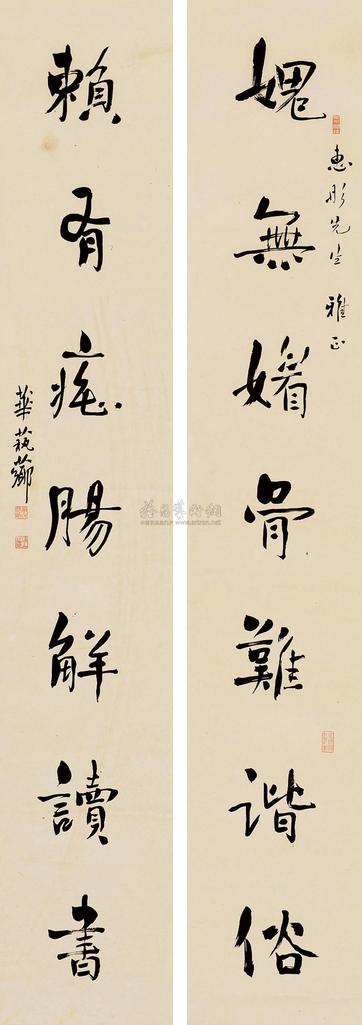 惠彤先生 雅正
媿無媚骨難諧俗
賴有癡腸解讀書
華蓺薌